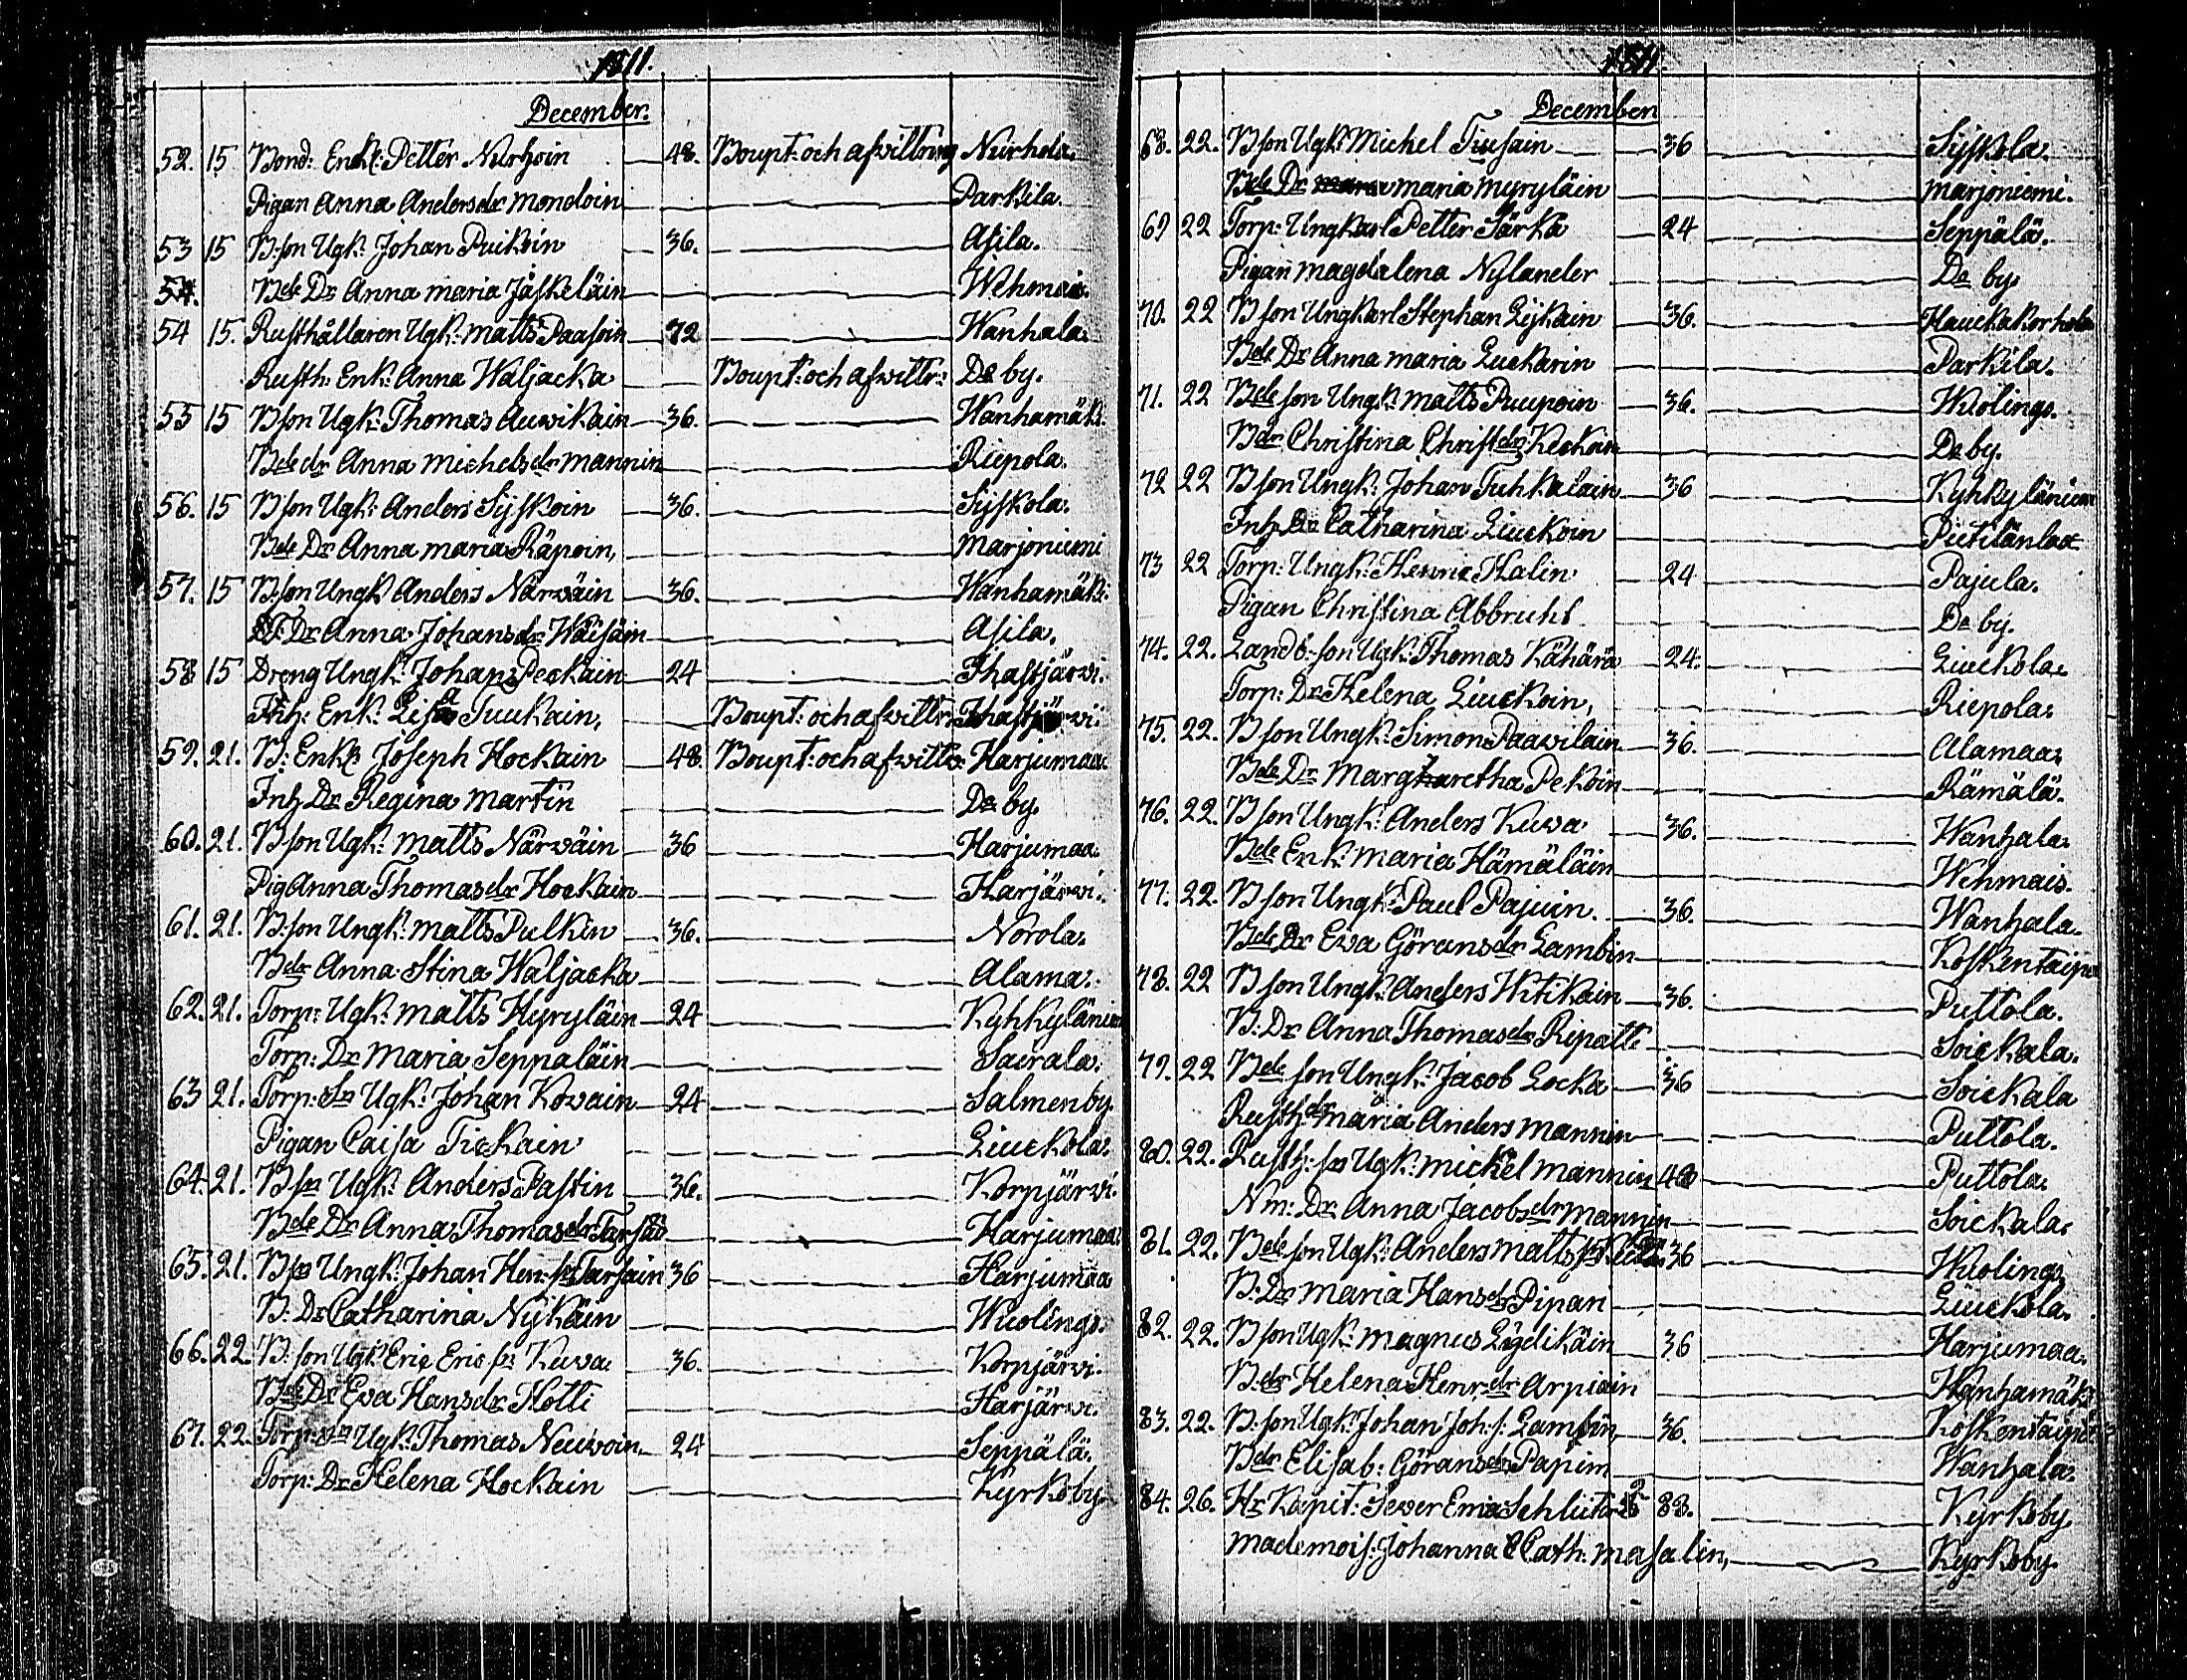 1811.
December.
52. 15 Bond: Enkl: Petter Nurhoin 48. Boupt: och afvittring Nurhola.
Pigan Anna Andersdr Mondoin Parkila.
53 15 B: son Ugk: Johan Puikoin 36. Asila.
54. Bde Dr Anna Maria Jäskeläin Wehmais.
54 15. Rusthållaren Ugk: Matts Paasoin 72 Wanhala.
Rusth: Enk: Anna Waljacka Boupt: och afvittr: De by.
55 15 B son Ugk: Thomas Auvikain 36. Wanhamäki.
Bde dr Anna Michelsdr Mannin Riepola.
56. 15 B son Ugk: Anders Syskoin 36. Syskola.
Bde Dr Anna Maria Räpoin, Marjoniemi
57. 15 B: son Ungk Anders Närväin 36. Wanhamäki.
B: Dr Anna Johansdr Wäisäin Asila.
58 15 Dreng Ungk: Johan Peckain 24 Ihastjärvi.
Inh: Enk: Lisa Tuukain, Boupt: och afvittr: Ihastjärvi.
59. 21. B: Enkl: Joseph Hockain 48. Boupt: och afvittr: Harjumaa.
Inh Dr Regina Martin De by.
60. 21. B son Ugk: Matts Närväin 36 Harjumaa.
Pig Anna Thomasdr Hockain Harjärvi.
61. 21. B: son Ungk: Matts Pulkin 36. Norola.
Bdr Anna Stina Waljacka Alama:
62. 21. Torp: Ugk: Matts Hyryläin 24 Kyhkyläniem
Torp: Dr Maria Seppäläin Sairala.
63 21. Torp: Sn Ugk: Johan Kovain 24 Salmenby.
Pigan Caisa Tickain Liuckola.
64. 21. B sn Ugk: Anders Pastin 36. Korpjärvi.
Bde Dr Anna Thomasdr Tarsäi Harjumaa.
65. 21. B sn Ungk: Johan Hen: sn Tarsain 36 Harjumaa
B: Dr Catharina Nykäin Wuolings.
66. 22. B: son Ugk: Eric Eric sn Kuwa 36. Korpjärvi.
Bde Dr Eva Hansdr Hotti Harjärvi.
67. 22. Torp: sn Ugk: Thomas Neuvoin 24 Seppälä.
Torp: Dr Helena Hockain Kyrkoby.
1811.
December
68. 22. B son Ugk: Michel Tiusain 36 Syskola.
Bde Dr Maria Myryläin Marjoniemi.
69 22 Torp: Ungkarl Petter Särkä 24 Seppälä.
Pigan Magdalena Nylander De by.
70. 22 B son Ungkarl Stephan Lyskain 36. Hauckakorhola
Bde Dr Anna Maria Luckarin Parkila.
71. 22 Bde son Ungk: Matts Puupoin 36. Wuolings.
Bdr Christina Christdr Keckoin De by.
72 22 B son Ungk: Johan Tuhkalain 36 Kyhkyläniem
Inh Dr Catharina Liuckoin Putilänlax
73 22 Torp: Ungk: Henric Halin 24 Pajula.
Pigan Christina Abbruhl De by.
74. 22. Landb: son Ugk: Thomas Kähärä 24. Liuckola.
Torp: Dr Helena Liuckoin, Riepola.
75. 22. B son Ungk: Simon Paavilain 36. Alamaa.
Bde Dr Margharetha Pekoin Rämälä.
76. 22. B son Ungk: Anders Kuwa 36. Wanhala.
Bde Enk: Maria Hämäläin Wehmais.
77. 22. B son Ungk: Paul Pajuin. 36. Wanhala.
Bde Dr Eva Göransdr Lambin Koskentaipa
78. 22 B son Ungk: Anders Hitikain 36. Puttola.
B: Dr Anna Thomasdr Ripatti Soickala.
79. 22 Bde son Ungk: Jacob Locka 36 Soickala
Rusth: dr Maria Anders Mannin Puttola.
80. 22. Rusth: sn Ugk: Mickel Mannin 48 Puttola.
Nm: Dr Anna Jacobsdr Mannin Soickala.
81. 22. Bde son Ugk: Anders Matts sn 36 Wuolings
B: Dr Maria Hansdr Pipari Liuckola.
82. 22. B son Ugk: Magnus Lydikäin 36 Harjumaa.
B: dr Helena Henr: dr Arpiain Wanhamäki
83. 22. B: son Ugk: Johan Joh: s: Lambin 36. Koskentaipa
Bdr Elisab: Göransdr Pajuin Wanhala.
84. 26. Hr Kapit: Sever Emia Schlüter 88. Kyrkoby.
Mademois: Johanna Cath: Masalin, Kyrkoby.